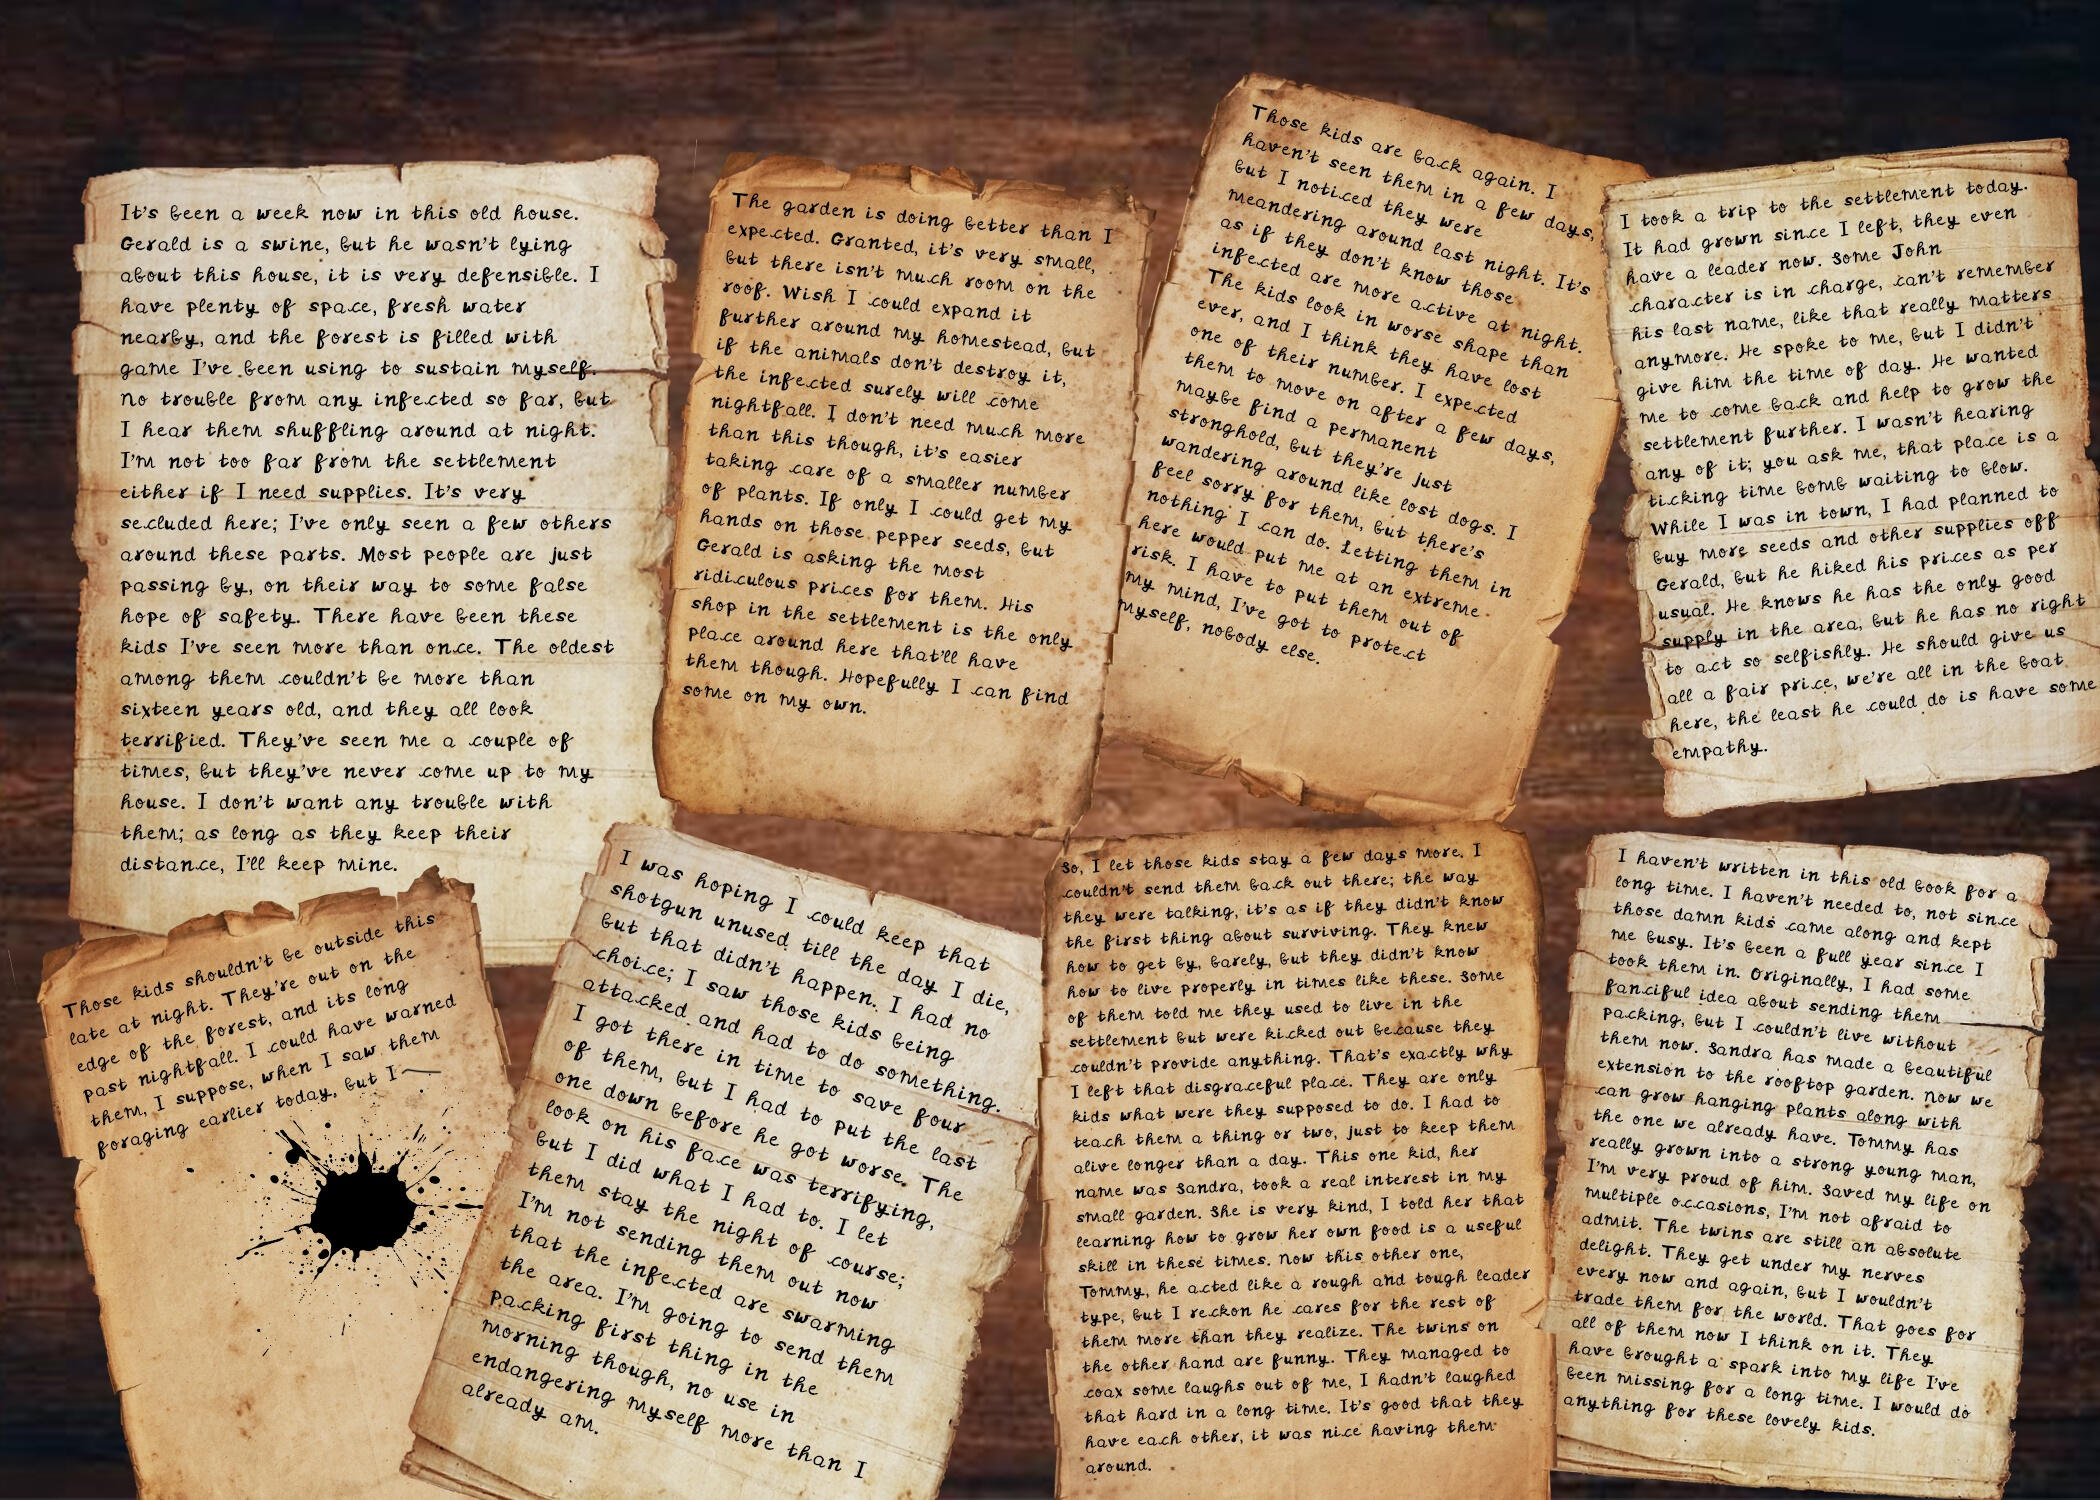 It's been a week now in this old house.
Gerald is a swine, but he wasn't lying
about this house, it is very defensible. I
have plenty of space, fresh water
nearby, and the forest is filled with
game I've been using to sustain myself.
No trouble from any infected so far, but
I hear them shuffling around at night.
I'm not too far from the settlement
either if I need supplies. It's very
secluded here; I've only seen a few others
around these parts. Most people are just
passing by, on their way to some false
hope of safety. There have been these
kids I've seen more than once. The oldest
among them couldn't be more than
sixteen years old, and they all look
terrified. They've seen me a couple of
times, but they've never come up to my
house. I don't want any trouble with
them; as long as they keep their
distance, I'll keep mine.
The garden is doing better than I
expected. Granted, it's very small,
but there isn't much room on the
roof. Wish I could expand it
further around my homestead, but
if the animals don't destroy it,
the infected surely will come
nightfall. I don't need much more
than this though, it's easier
taking care of a smaller number
of plants. If only I could get my
hands on those pepper seeds, but
Gerald is asking the most
ridiculous prices for them. His
shop in the settlement is the only
place around here that'll have
them though. Hopefully I can find
some on my own.
Those kids are back again. I
haven't seen them in a few days,
but I noticed they were
meandering around last night. It's
as if they don't know those
infected are more active at night.
The kids look in worse shape than
ever, and I think they have lost
one of their number. I expected
them to move on after a few days,
maybe find a permanent
stronghold, but they're just
wandering around like lost dogs. I
feel sorry for them, but there's
nothing I can do. Letting them in
here would put me at an extreme
risk. I have to put them out of
my mind, I've got to protect
myself, nobody else.
I took a trip to the settlement today.
It had grown since I left, they even
have a leader now. Some John
character is in charge, can't remember
his last name, like that really matters
anymore. He spoke to me, but I didn't
give him the time of day. He wanted
me to come back and help to grow the
settlement further. I wasn't hearing
any of it; you ask me, that place is a
ticking time bomb waiting to blow.
While I was in town, I had planned to
buy more seeds and other supplies off
Gerald, but he hiked his prices as per
usual. He knows he has the only good
supply in the area, but he has no right
to act so selfishly. He should give us
all a fair price, we're all in the boat
here, the least he could do is have some
empathy.
Those kids shouldn't be outside this
late at night. They're out on the
edge of the forest, and its long
past nightfall. I could have warned
them, I suppose, when I saw them
foraging earlier today, but I—
I was hoping I could keep that
shotgun unused till the day I die,
but that didn't happen. I had no
choice; I saw those kids being
attacked and had to do something.
I got there in time to save four
of them, but I had to put the last
one down before he got worse. The
look on his face was terrifying,
but I did what I had to. I let
them stay the night of course;
I'm not sending them out now
that the infected are swarming
the area. I'm going to send them
packing first thing in the
morning though, no use in
endangering myself more than I
already am.
So, I let those kids stay a few days more. I
couldn't send them back out there; the way
they were talking, it's as if they didn't know
the first thing about surviving. They knew
how to get by, barely, but they didn't know
how to live properly in times like these. Some
of them told me they used to live in the
settlement but were kicked out because they
couldn't provide anything. That's exactly why
I left that disgraceful place. They are only
kids what were they supposed to do. I had to
teach them a thing or two, just to keep them
alive longer than a day. This one kid, her
name was Sandra, took a real interest in my
small garden. She is very kind, I told her that
learning how to grow her own food is a useful
skill in these times. Now this other one,
Tommy, he acted like a rough and tough leader
type, but I reckon he cares for the rest of
them more than they realize. The twins on
the other hand are funny. They managed to
coax some laughs out of me, I hadn't laughed
that hard in a long time. It's good that they
have each other, it was nice having them
around.
I haven't written in this old book for a
long time. I haven't needed to, not since
those damn kids came along and kept
me busy. It's been a full year since I
took them in. Originally, I had some
fanciful idea about sending them
packing, but I couldn't live without
them now. Sandra has made a beautiful
extension to the rooftop garden. Now we
can grow hanging plants along with
the one we already have. Tommy has
really grown into a strong young man,
I'm very proud of him. Saved my life on
multiple occasions, I'm not afraid to
admit. The twins are still an absolute
delight. They get under my nerves
every now and again, but I wouldn't
trade them for the world. That goes for
all of them now I think on it. They
have brought a spark into my life I've
been missing for a long time. I would do
anything for these lovely kids.